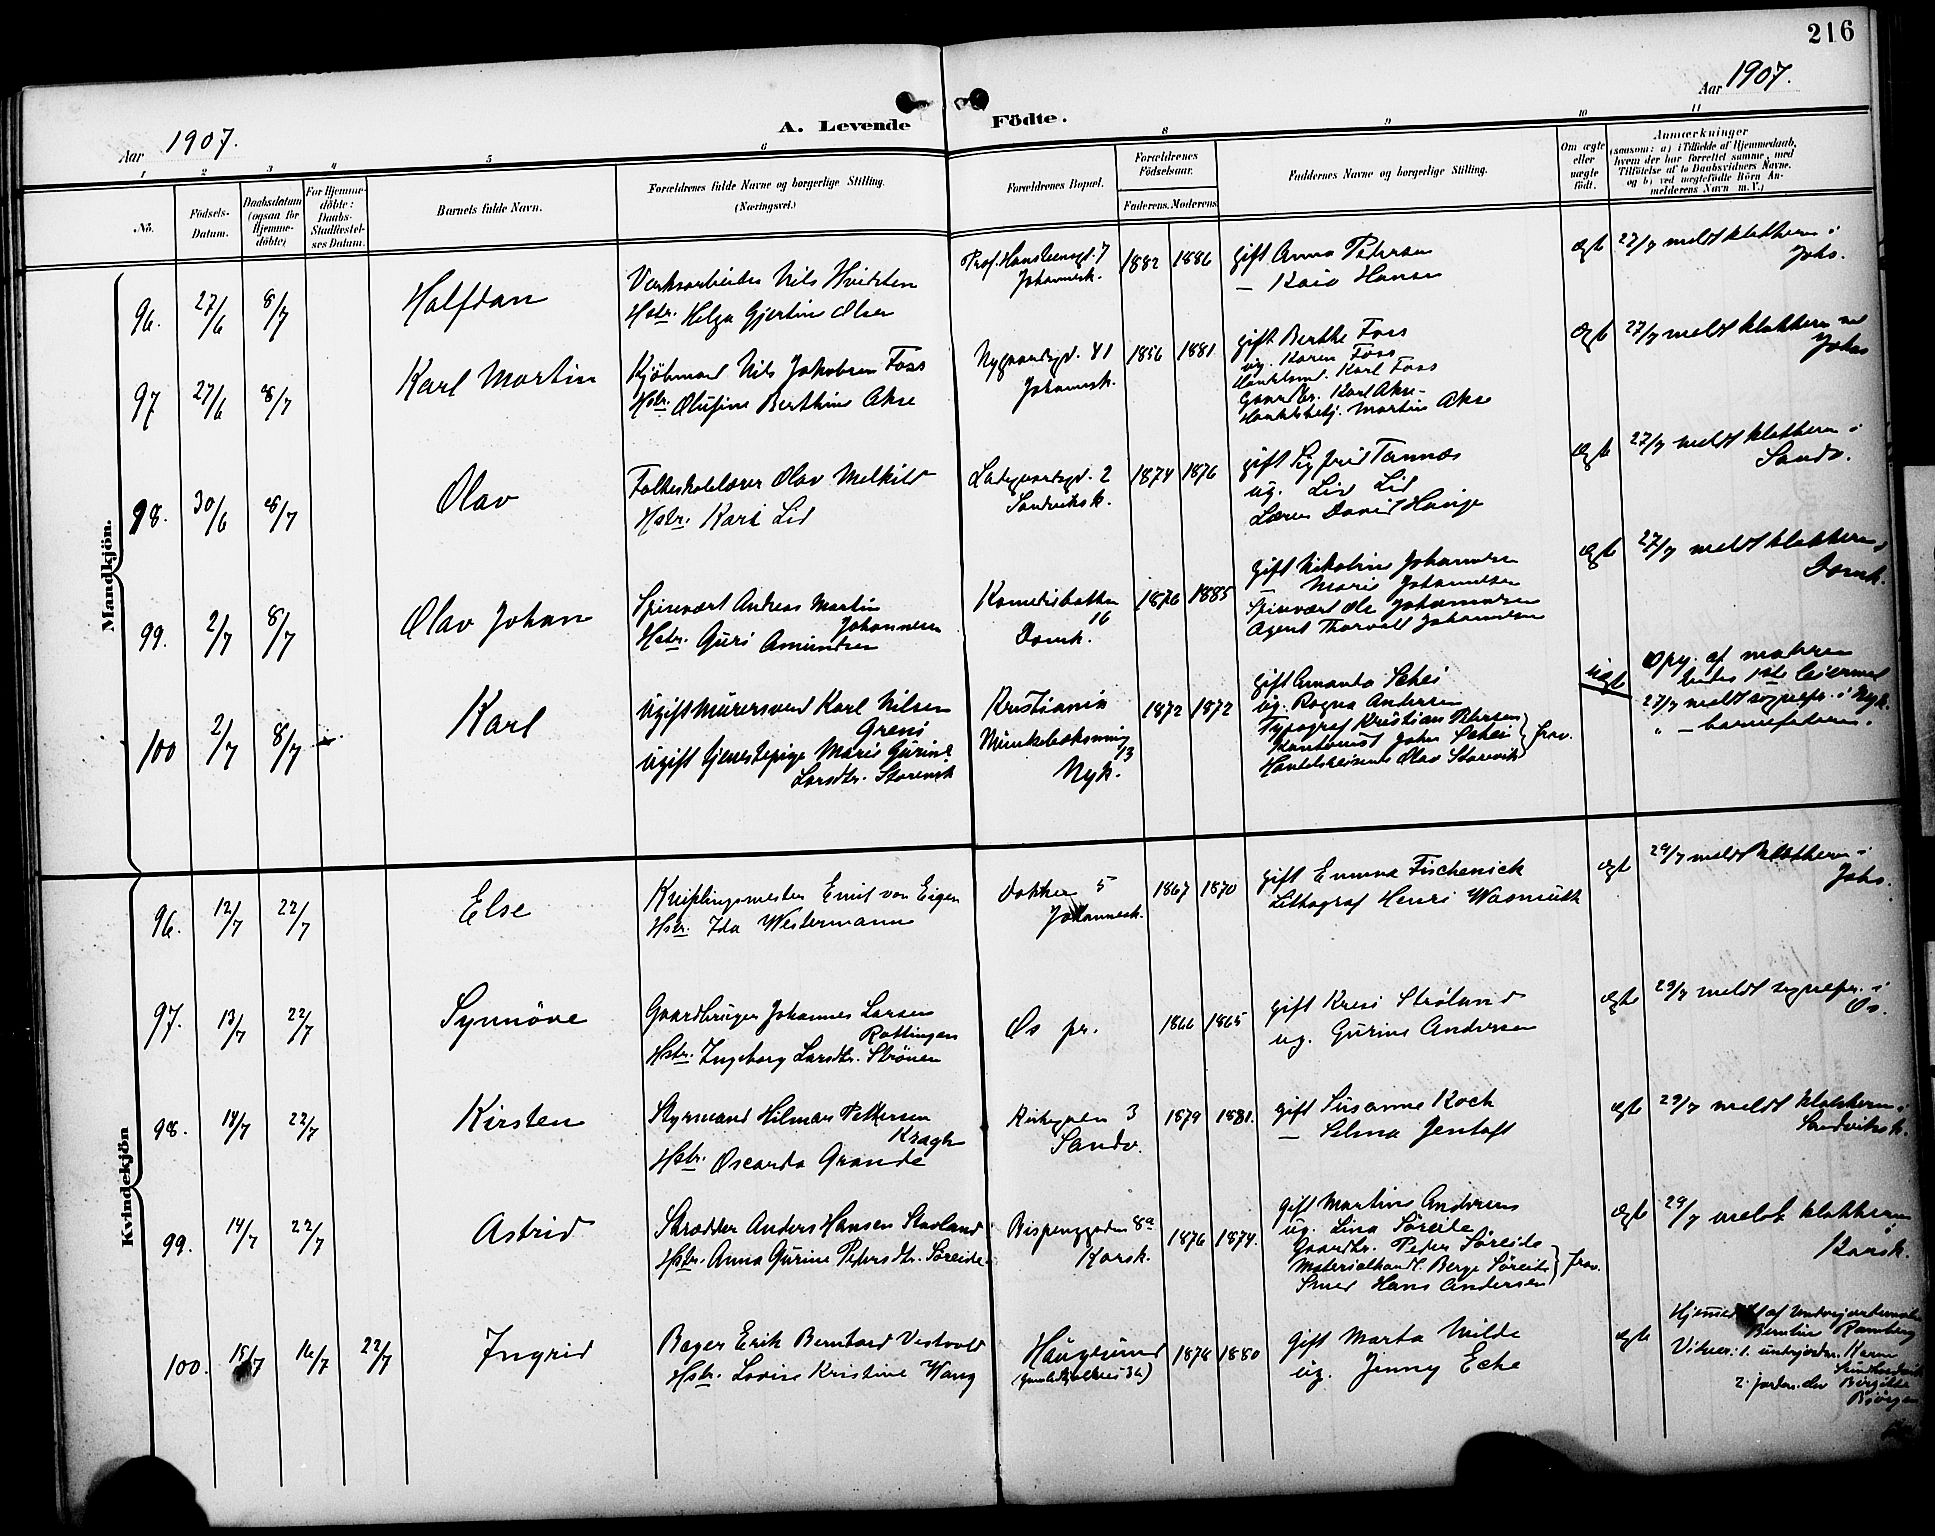 216
Aar 1907.
Aar 1907.
A. Levende Födte.
1 2 3 4 5 6 8 9 10 11
No.
Födsels-
Datum.
Daabsdatum
(ogsaa for
Hjemme-
döbte)
For Hjemme-
döbte:
Daabs-
Stadfæstel-
ses Datum.
Barnets fulde Navn.
Forældrenes fulde Navne og borgerlige Stilling.
(Næringsvei.)
Forældrenes Bopæl.
Forældrenes
Födselsaar.
Faderens. Moderens
Faddernes Navne og borgerlige Stilling.
Om ægte
eller
uægte
födt.
Anmærkninger
(saasom: a) i Tilfælde af Hjemmedaab,
hvem der har forrettet samme, med
Tilföielse af to Daabsvidners Navne,
og b) ved uægtefödte Börn An-
melderens Navn m. V.)
Mandkjön.
96. 27/6 8/7 Halfdan
Verksarbeider Nils Hvidsten
Hstr. Helga Gjertine Olsen
7
Johannesk.
1882 1886
gift Anna Petersen
— Hansen
ægte
27/7 meldt klokkeren i
Johs.
97 27/6 8/7 Karl Martin
Kjöbmand Nils Jakobsen Foss
Hstr. Olufine Berthine Akse
Nygaardsgd. 41
Johannesk.
1856 1881
gift Berthe Foss
ug. Karen Foss
Handelsmd. Karl Foss
Gaardbr. Karl Akse
Handelsbetj. Martin Akse
ægte
27/7 meldt klokkeren ved
Johs
98. 30/6 8/7 Olav
Folkeskolelærer Olav Melkild
Hstr. Kari Lid
Ladegaardsgd. 2
Sandviksk.
1874 1876
gift Sigfrid Tarmæs
ug. Liv Lid
Lærer David Hauge
ægte
27/7 meldt klokkeren i
Sandv.
99. 2/7 8/7 Olav Johan
Spisevært Andreas Martin
Johannesen
Hstr. Guri Amundsen
Komediebakken
16
Domk.
1876 1885
gift Nikoline Johannesen
— Marie Johannesen
Spisevært Ole Johannesen
Agent Thorvald Johannesen
ægte
27/7 meldt klokkeren i
Domk.
100 2/7 8/7 Karl
Ugift Murersvend Karl Nilsen
Greni
ugift tjenestepige Marie Gurine
Larsdtr. Storevik
Kristiania
Munkebæksmug
13
Nyk.
1872 1872
gift Amanda Schei
ug. Ragna Andersen
Typograf Kristian Petersen
Kontorist John Schei
Handelsreisende Olav Storevik } frav.
uægte
Opg. af moderen
begges 1ste leiermaal
27/7 meldt sognepr. i Nyk.
" — barnefaderen.
Kvindekjön
96. 12/7 22/7 Else
Kniplingsmester Emil von Eigen
Hstr. Ida Westermann
Dokken 5
Johannesk.
1867 1870
gift Emma Fischenich
Lithograf Henri Wasmuth
ægte
29/7 meldt klokkeren i
Johs.
97. 13/7 22/7 Synnöve
Gaardbruger Johannes Larsen
Rottingen
Hstr. Ingeborg Larsdtr. Strönen
Os pr.
1866 1865
gift Kresi Stroland
ug. Gurine Andersen
ægte
29/7 meldt sognepr. i
Os.
98. 14/7 22/7 Kirsten
Styrmand Hilmar Pettersen
Kragh
Hstr. Oscarda Grande
Kirkegaden 3
Sandv.
1879 1881.
gift Susanne Koch
— Selma Jentoft
ægte
29/7 meldt klokkeren i
Sandviksk.
99. 14/7 22/7 Astrid
Skrædder Anders Hansen Stavland
Hstr. Anna Gurine Petersdtr. Söreide
Bispenggaden 8a
Korsk.
1876 1874.
gift Martine Andersen
ug. Lina Söreide
Gaardbr. Peder Söreide
Materialhandl. Berge Söreide
Smed Hans Andersen } frav.
ægte
29/7 meldt klokkeren
i
Korsk.
100. 15/7 16/7 22/7 Ingrid
Bager Erik Berntard Vestvold
Hstr. Lovise Kristine Wang
Haugesund
1878 1880
gift Marta Milde
ug. Jenny Eche
ægte
Hjemmedöbt af underjordemoder
Berntine Ramberg
Vidner: 1. underjordm. Karen
2. jordm. elev Birgitte